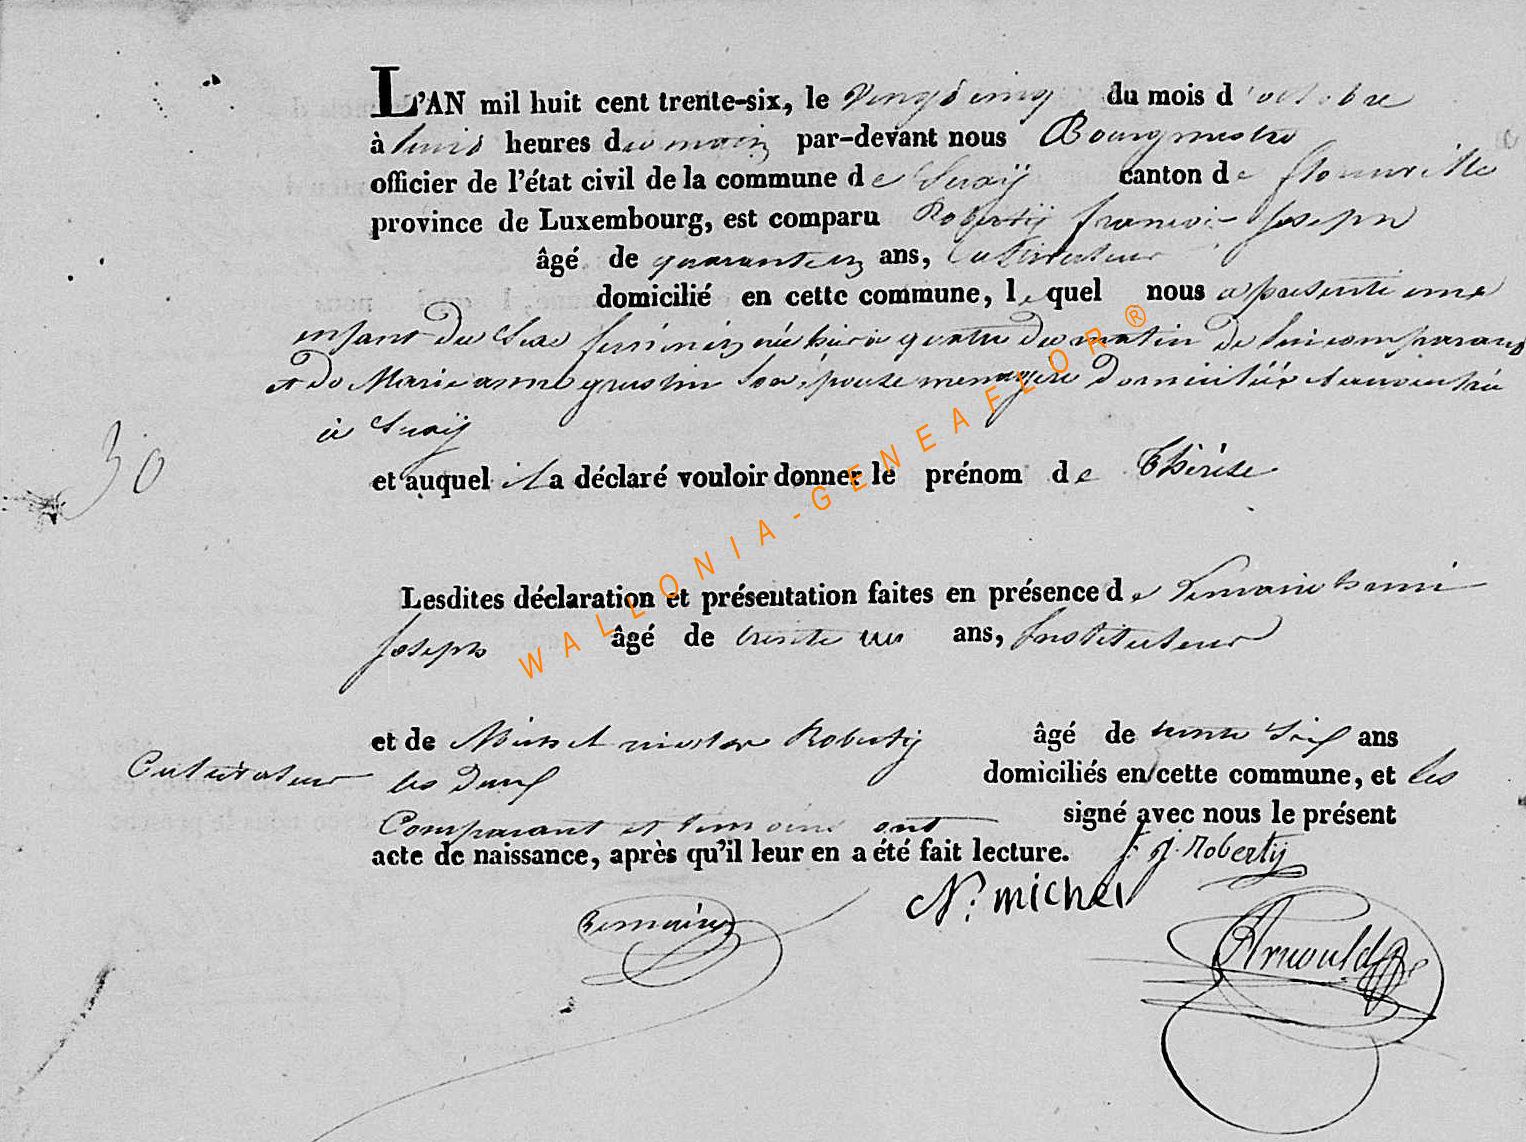 L'AN mil huit cent trente-six, le vingt cinq du mois d'octobre
à huit heures du matin par-devant nous Bourgmestre
officier de l'état civil de la commune de Suxÿ canton de florenville
province de Luxembourg, est comparu Robertÿ francois Joseph
âgé de quarante ans, Cultivateur
domicilié en cette commune, lequel nous a présenté une
enfant du Sexe féminin née hier à quatre du matin de lui comparant
et de Marie anne Son épouse menagere domiciliée
à Suxÿ
et auquel il a déclaré vouloir donner le prénom de Thérèse
30
WALLONIA-GENEAFLOR®
Lesdites déclaration et présentation faites en présence de henri
Joseph âgé de trente un ans, Instituteur
et de Michel nicolas Robertÿ âgé de trente Six ans
Cultivateur les deux domiciliés en cette commune, et les
Comparant et temoins ont signé avec nous le présent
acte de naissance, après qu'il leur en a été fait lecture. f. J. Robertÿ
N. michel
Arnould